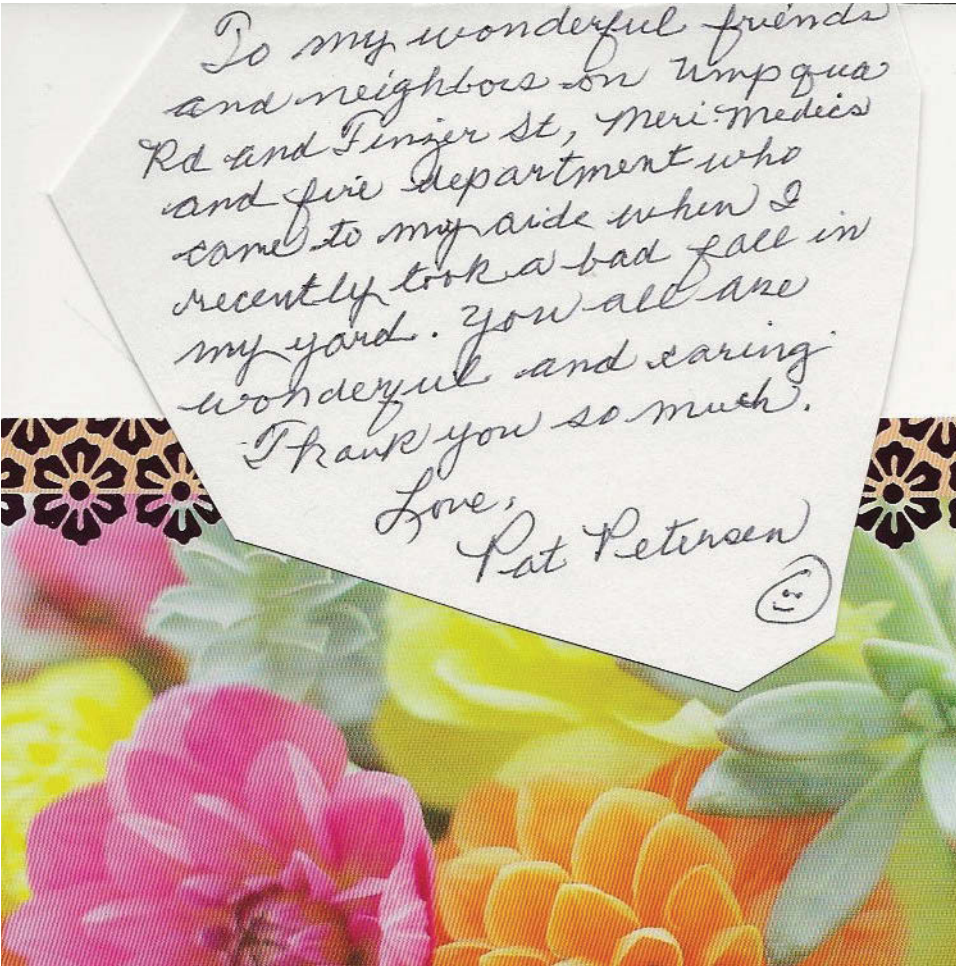 To my wonderful friends
and neighbors on Umpqua
Rd and Finzer St, Meri-Medics
and fire department who
came to my aide when I
recently took a bad fall in
my yard. You all are
wonderful and caring
Thank you so much.
Love,
Pat Petersen